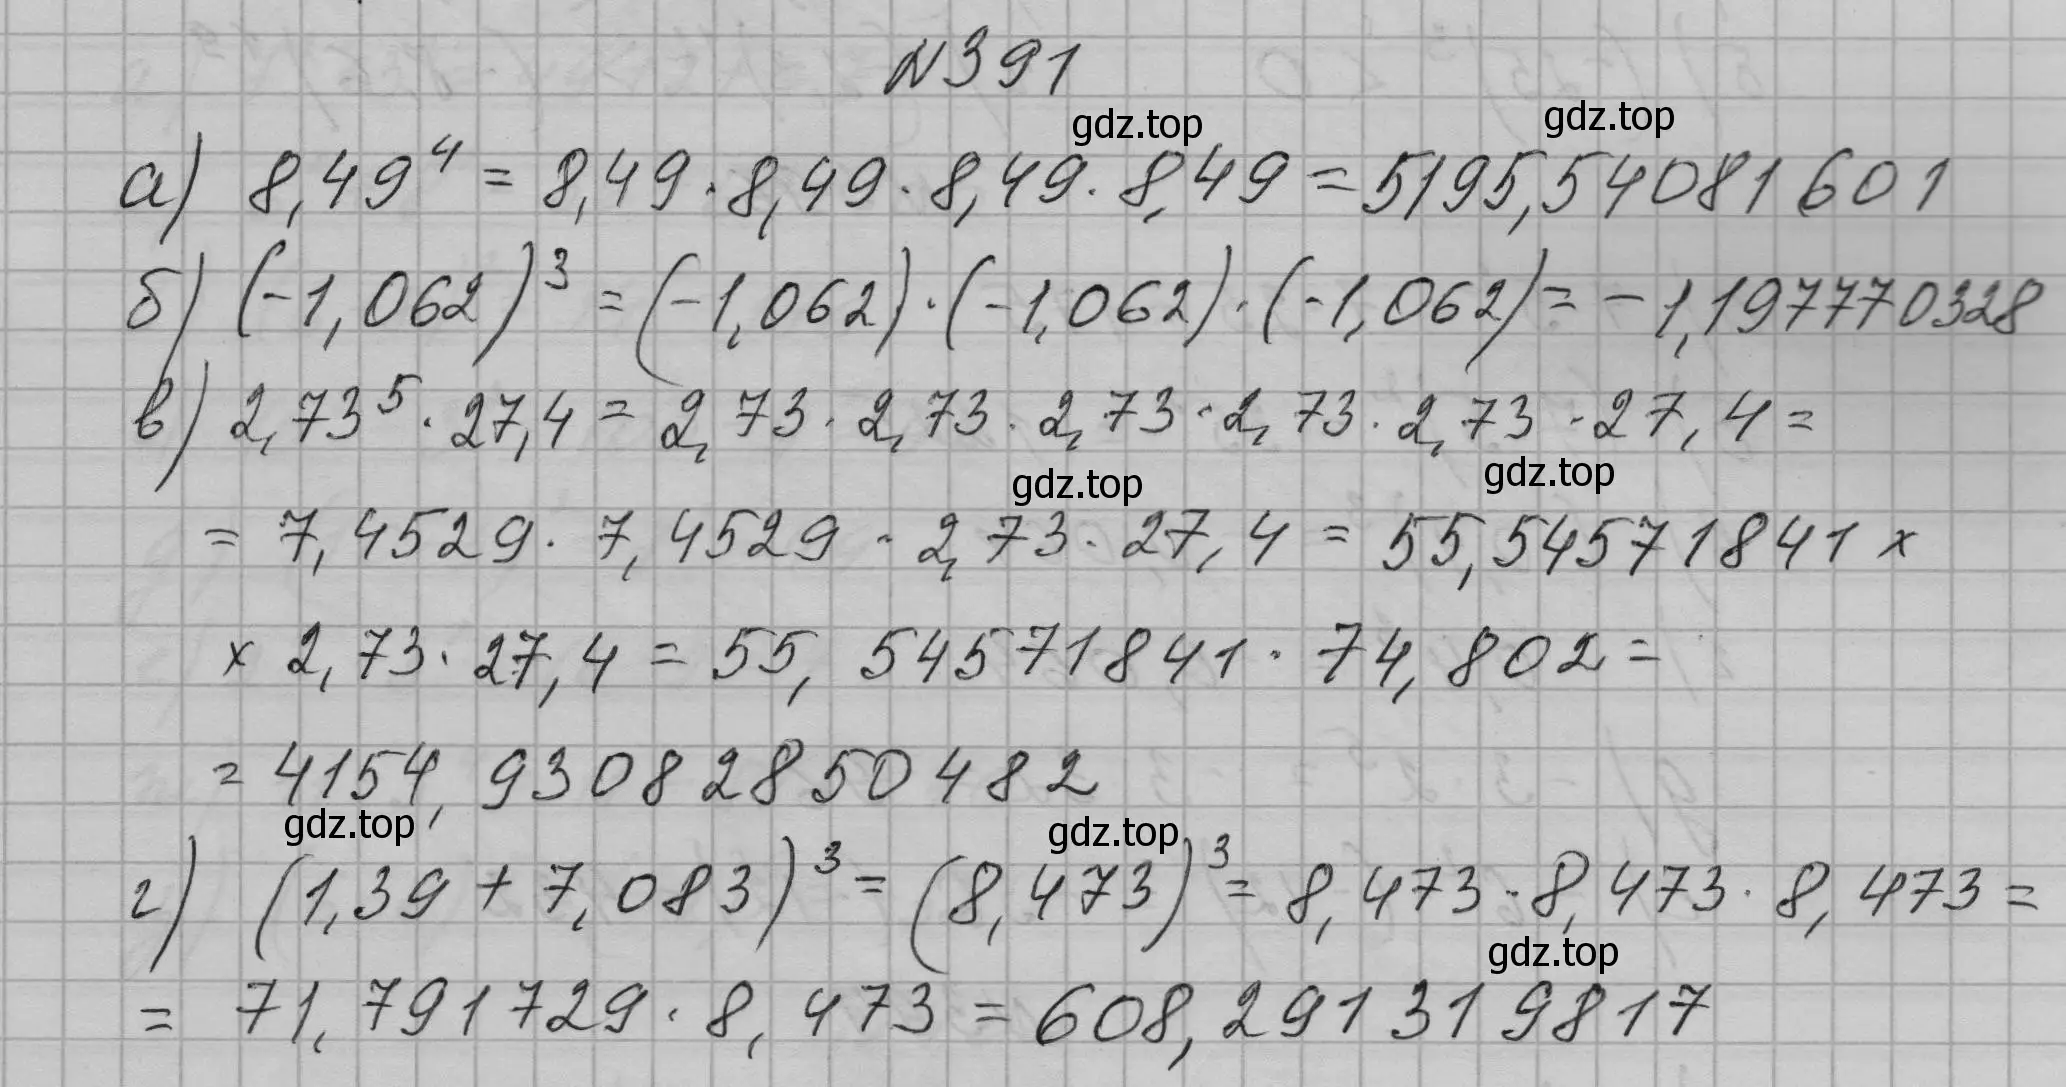 N391
gdz.top gdz.top
а) 8,49⁴ = 8,49 · 8,49 · 8,49 · 8,49 = 5195,54081601
б) (-1,062)³ = (-1,062) · (-1,062) · (-1,062) = -1,197770328
в) 2,73⁵ · 27,4 = 2,73 · 2,73 · 2,73 · 2,73 · 2,73 · 27,4 =
gdz.top gdz.top
= 7,4529 · 7,4529 · 2,73 · 27,4 = 55,54571841 ×
× 2,73 · 27,4 = 55,54571841 · 74,802 =
= 4154,93082850482
gdz.top gdz.top
г) (1,39 + 7,083)³ = (8,473)³ = 8,473 · 8,473 · 8,473 =
gdz.top
= 71,791729 · 8,473 = 608,291319817